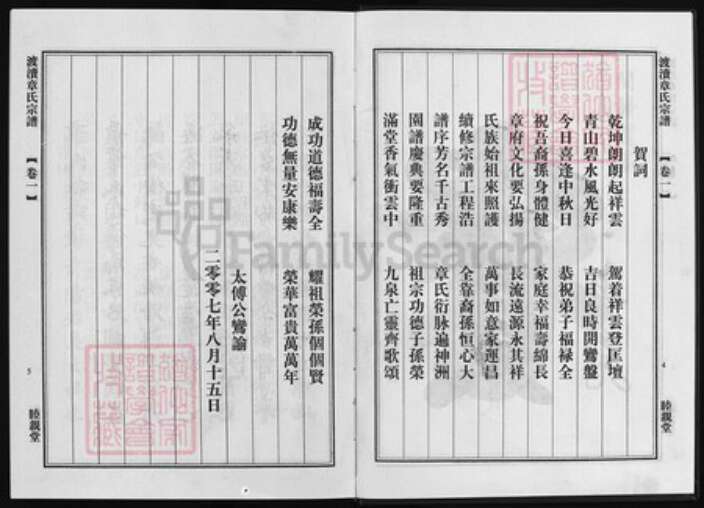 渡瀆章氏宗譜 【卷一】 4 睦親堂
賀詞
乾坤朗朗起祥雲 駕着祥雲登匡壇
青山碧水風光好 吉日良時開鸞盤
今日喜逢中秋日 恭祝弟子福禄全
祝吾裔孫身體健 家庭幸福壽綿長
章府文化要弘揚 長流遠源永其祥
氏族始祖來照護 萬事如意家運昌
續修宗譜工程浩 全靠裔孫恒心大
譜序芳名千古秀 章氏衍脉遍神洲
園譜慶典要隆重 祖宗功德子孫榮
滿堂香氣衝雲中 九泉亡靈齊歌頌
成功道德福壽全 耀祖榮孫個個賢
功德無量安康樂 榮華富貴萬萬年
太傅公鸞諭
二零零七年八月十五日
渡瀆章氏宗譜 【卷一】 5 睦親堂
FamilySearch